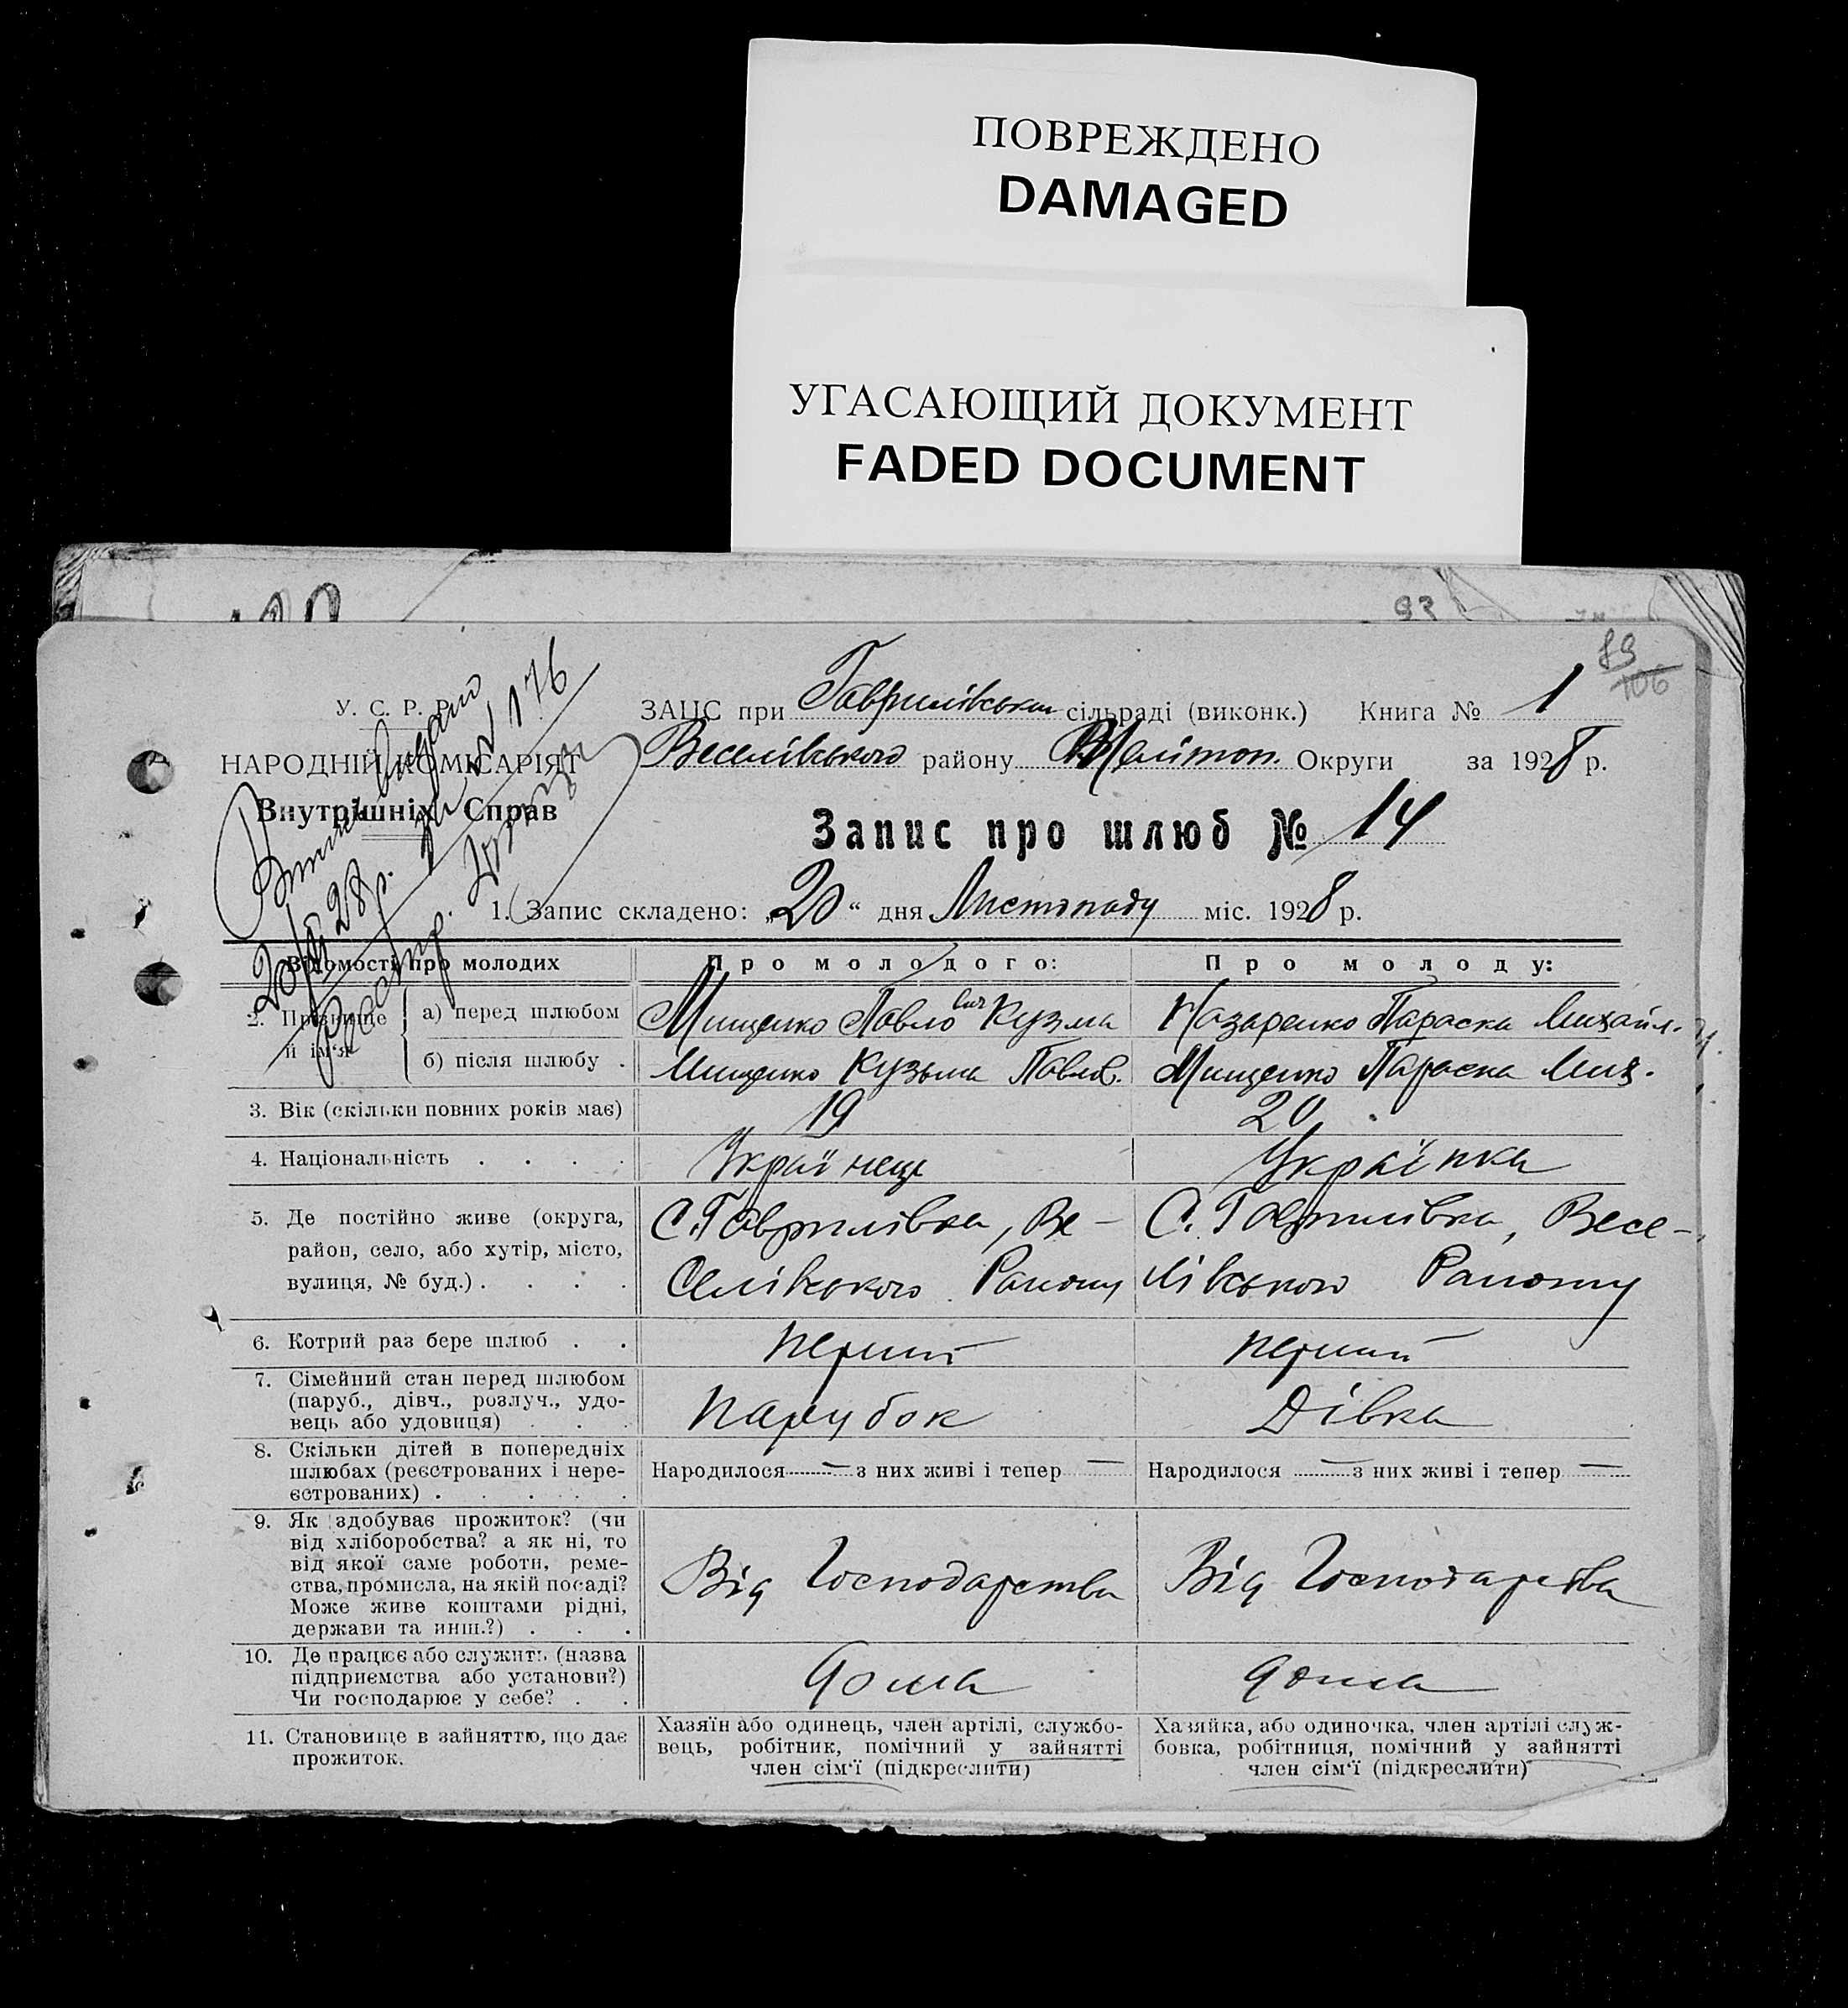 ПОВРЕЖДЕНО
DAMAGED
УГАСАЮЩИЙ ДОКУМЕНТ
FADED DOCUMENT
93
89
106
У. С. Р. Р.
НАРОДНІЙ КОМІСАРІЯТ
Внутрішніх Справ
Витяг видано
20/XI 28 р. за № 176
ЗАЦС при Гаврилівськи сільраді (виконк.) Книга № 1
Веселівського району Мелітоп. Округи за 1928 р.
Запис про шлюб № 14
1. Запис складено: „20“ дня Листопаду міс. 1928 р.
Відомості про молодих Про молодого: Про молоду:
2. Прізвище й ім'я
а) перед шлюбом Мищенко Павлович Кузма Назаренко Параска Михайл.
б) після шлюбу Мищенко Кузьма Павлов. Мищенко Параска Мих.
3. Вік (скільки повних років має) 19 20
4. Національність Українець Українка
5. Де постійно живе (округа, С. Гаврилівка, Ве- С. Гаврилівка, Весе-
район, село, або хутір, місто,
вулиця, № буд.) Селівського Району лівського Району
6. Котрий раз бере шлюб перший перший
7. Сімейний стан перед шлюбом
(паруб., дівч., розлуч., удо-
вець або удовиця) парубок Дівка
8. Скільки дітей в попередніх
шлюбах (реєстрованих і нере- Народилося — з них живі і тепер — Народилося — з них живі і тепер —
єстрованих)
9. Як здобуває прожиток? (чи
від хліборобства? а як ні, то
від якої саме роботи, реме-
ства, промисла, на якій посаді? Від Господарства Від Господарства
Може живе коштами рідні,
держави та инш.?)
10. Де працює або служить (назва
підприємства або установи?) дома дома
Чи господарює у себе?
11. Становище в зайняттю, що дає Хазяїн або одинець, член артілі, службо- Хазяйка, або одиночка, член артілі служ-
прожиток. вець, робітник, помічний у зайнятті бовка, робітниця, помічний у зайнятті
член сім'ї (підкреслити) член сім'ї (підкреслити)